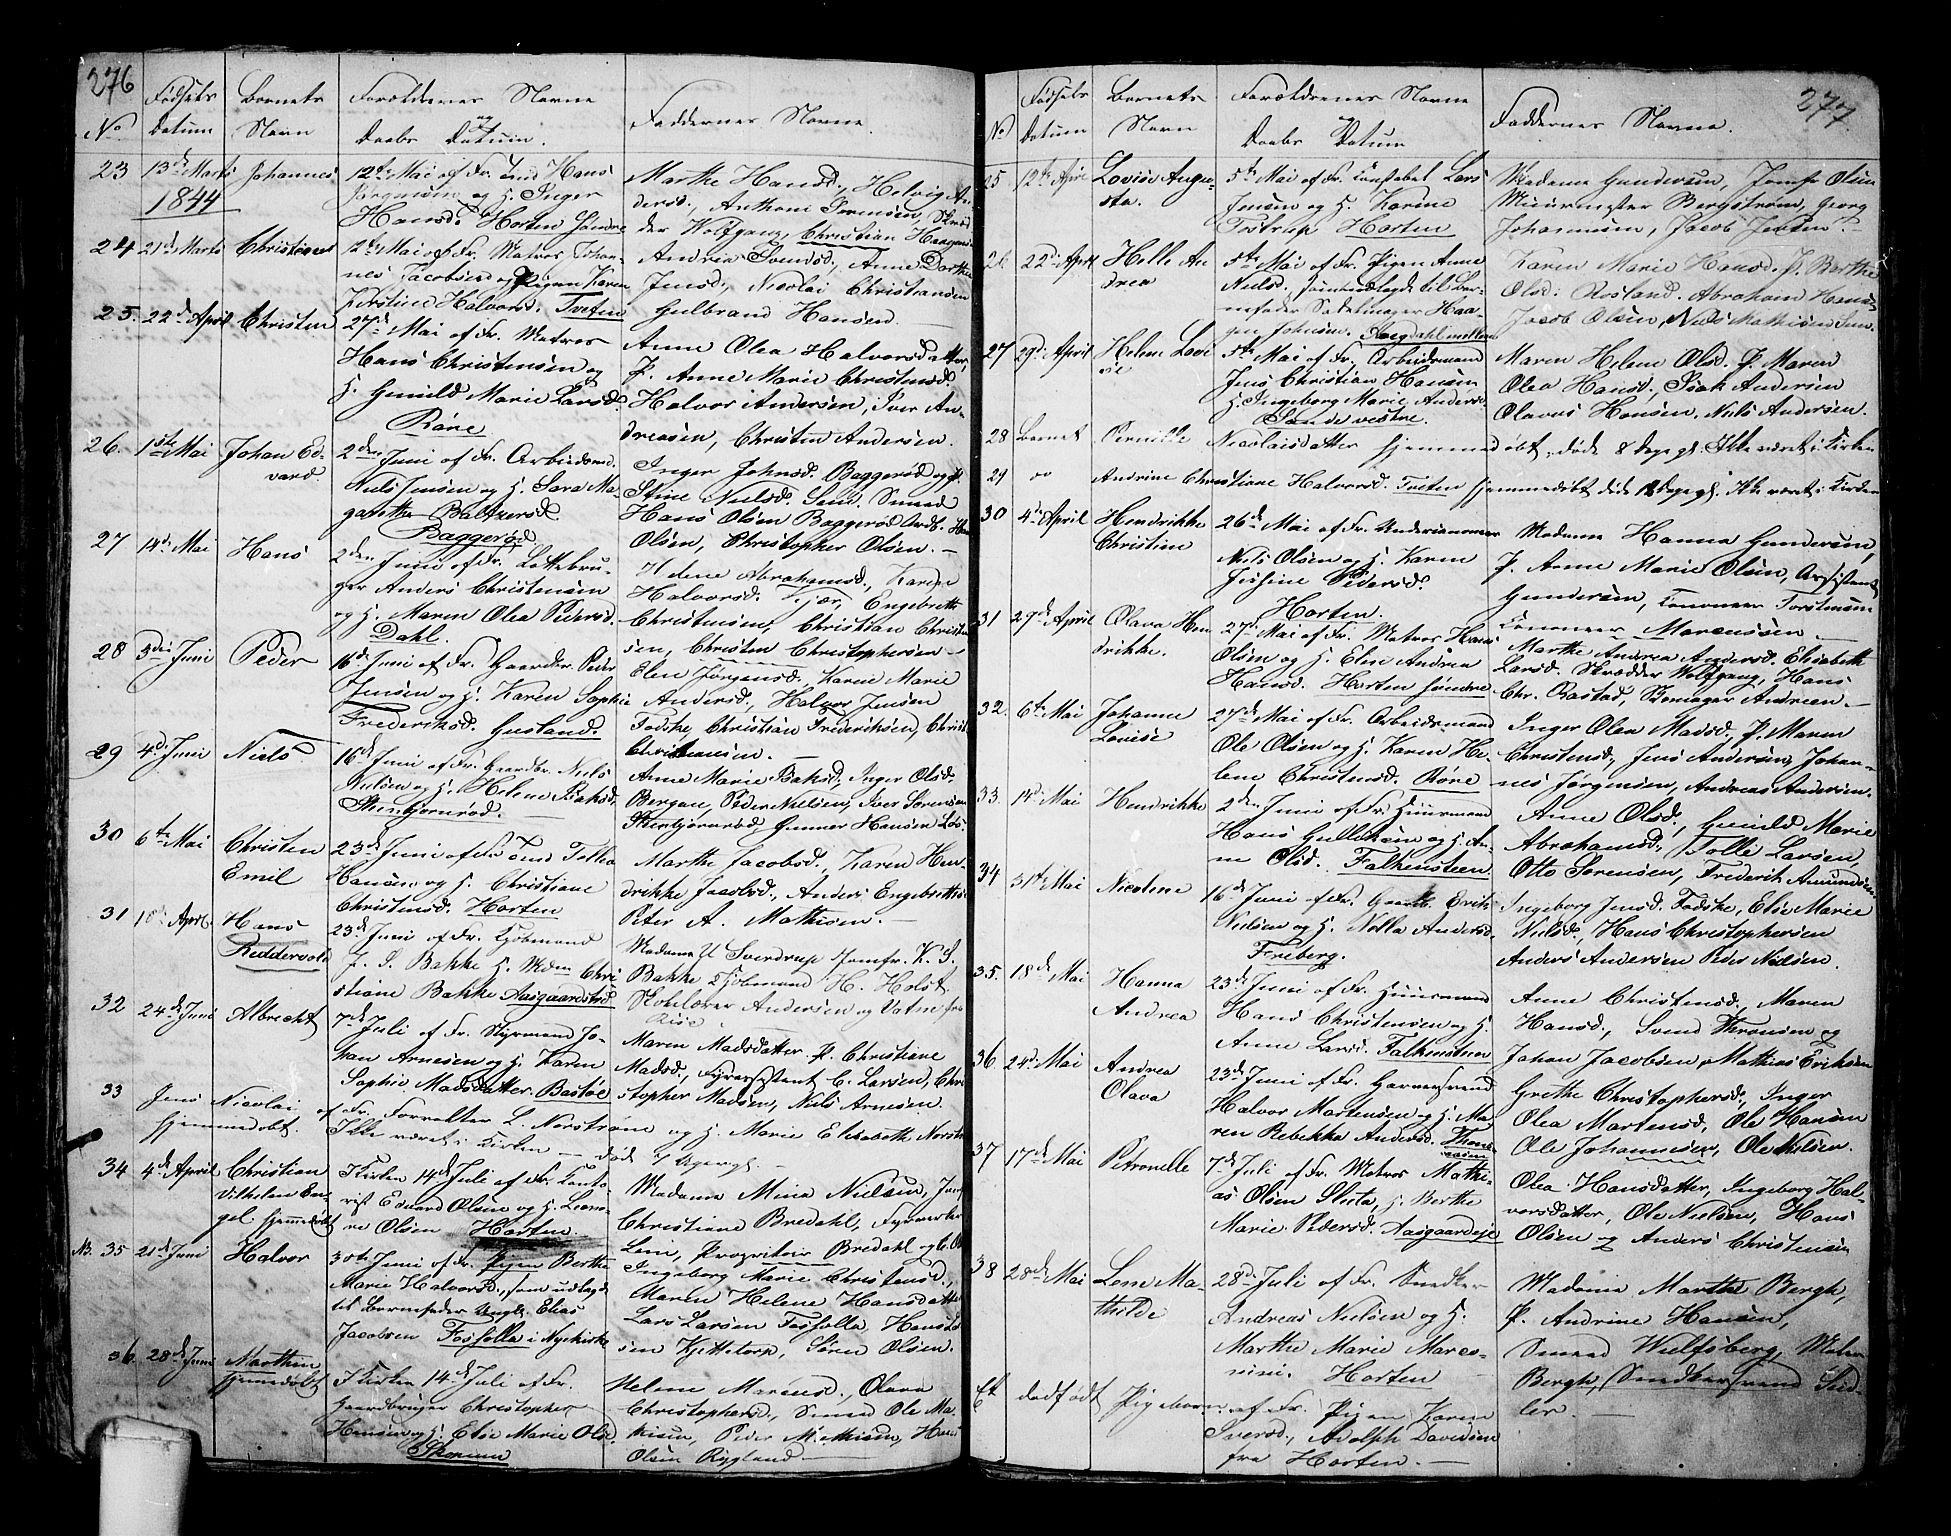 276
No
Fødsels Datum
Barnets Navn
Forældrenes Navne og Daabs Datum.
Faddernes Navne.
23 13de Marts 1844 Johannes
12te Mai af Fr. Hans
og H. Inger
Hansd. Horten Søndre
Marthe Hansd., Helvig An-
dersd., Anthoni Sørensen, Skræd
der Wolfgang, Christian Haagensen
24 21de Marts Christiane
12te Mai af Fr. Matros Johan-
nes Jacobsen og Pigen Karen
Kirstine Halvorsd. Tveten
Andrea Svendsd., Anne Dorthe
Jensd., Nicolai Christiansen
Gulbrand Hansen
25. 22de April Christen
27de Mai af Fr. Matros
Hans Christensen og
H. Gunild Marie Larsd.
Røre
Anne Olea Halvorsdatter,
P. Anne Marie Christensd.
Halvor Andersen, Iver An-
dreasen, Christen Andersen.
26. 1ste Mai Johan Ed-
vard.
2den Juni af Fr. Arbeidsmd.
Niels Jensen og H. Sara Ma-
grethe Baltzersd.
Baggerød
Inger Johnsd. Baggerød og P.
Stine Nielsd. Smed
Hans Olsen Baggerød
Olsen, Christopher Olsen.
27 14de Mai Hans
2den Juni af Fr. Leilebru-
ger Anders Christensen
og H. Maren Olea Pedersd.
Dahl.
Helene Abrahamsd., Karen
Halvorsd. Kjær, Engebreth
Christensen, Christian Christen
sen, Christen Christophersen
28 3die Juni Peder
16de Juni af Fr. Gaardbr. Peder
Jensen og H. Karen Sophie
Frederiksd. Gusland.
Elen Jørgensd. Karen Marie
Andersd., Halvor Jensen
Fadske, Christian Frederiksen, Christ.
Christensen.
29 4de Juni Niels
16de Juni af Fr. Gaardbr. Niels
Nielsen og H. Helene Baksd.
Skenbjørnrød.
Anne Marie Baksd., Inger Olsd.
Bergan, Peder Nielsen, Iver Sørensen
Skenbjørnrød Gunner Hansen
30 6te Mai Christen
Emil
23de Juni af Fr.
Hansen og H. Christiane
Christensd. Horten
Marthe Jacobsd., Karen Hen-
drikke Jacobsd., Anders Engebrethsen
Peter A. Mathisen.
31 18de April Hans
Reddervold
23de Juni af Fr. Kjøbmand
J. S. Bakke H. Mdm Chri-
stiane Bakke Aasgaardstrand
Madame Sverdrup Jomfr. K. S.
Bakke Kjøbmand H. Holst
Skolelærer Andersen og
32 24de Juni Albrecht
7de Juli af Fr. Styrmand Jo-
han Arnesen og H. Karen
Sophie Madsdatter. Bastøe
Maren Madsdatter. P. Christiane
Madsd., Fyrassistent C. Larsen, Chri-
stopher Madsen, Niels Arnesen.
33 Jens Nicolai af Fr. Forvalter L. Norstrøm og H. Marie Elisabeth Norstrøm
hjemmedøbt. Ikke været i Kirken — død 7 Dage gl. —
34 4de April Christian
Vilhelm En-
gel. hjemmedøbt
I Kirken 14de Juli af Fr. Konto-
rist Edvard Olsen og H. Leono-
re Olsen Horten.
Madame Mina Nielsen, Jomf.
Christiane Bredahl, Fyrverker
Lein, Proprietair Bredahl og
NB. 35 21de Juni Halvor
30te Juni af Fr. Pigen Berthe
Marie Halvorsd., som udlagde
til Barnefader Ungk. Elias
Jacobsen Fosfolla i Nykirke
Ingeborg Marie Christensd.,
Maren Helene Hansdatter
Lars Larsen Fosfolla, Hans
sen Kjettetorp, Søren Olsen.
36. 28de Juni Marthin
hjemmedøbt
I Kirken 14de Juli af Fr.
Gaardbruger Christopher
Hansen og H. Elise Marie Olsd.
Skoppum
Helene Marensd., Olava
Christophersd., Smed Ole Ma-
thisen, Peder Mathisen, Hans
Olsen Rygland
277
No
Fødsels Datum
Barnets Navn
Forældrenes Navne og Daabs Datum
Faddernes Navne.
25 12te April Lovise Augu-
sta.
5te Mai af Fr. Konstabel Lars
Jensen og H. Karine
Tostrup Horten
Madame Gundersen, Jomfr Olsen
Muurmester Bergstrøm, Georg
Johannsen, Jacob Jensen.
26 22de April Helle An-
drea
5te Mai af Fr. Pigen Anne
Nielsd., som udlagde til Bar-
nefader Sadelmager Haa-
gen Johnsen. Borgdahl mellem
Karen Marie Hansd. P. Berthe
Olsd. Rosland. Abraham Hansen
Jacob Olsen, Niels Mathisen
27 29de April Helene Lovi-
se
5te Mai af Fr. Arbeidsmand
Jens Christian Hansen
H. Ingeborg Marie Andersd.
Sande vestre.
Maren Helene Olsd. P. Maren
Olea Hansd., Isak Andersen
Olavus Hansen, Niels Andersen.
28 Barnet Pernille Nicolaisdatter hjemmedøbt, døde 8 dage gl. Ikke været i Kirken
29 — Andrine Christiane Halvorsd. Tveten hjemmedøbt døde 12 dage gl. Ikke været i Kirken
30 4de April Hendrikke
Christine
26de Mai af Fr. Underkanoneer
Niels Olsen og H. Karen
Josine Pedersd.
Horten.
Madame Hanna Gundersen,
P. Anne Marie Olsen, Assistent
Gundersen, Kanoneer Torstensen
Kanoneer Marcussen
31 29de April Olava Hen-
drikke.
27de Mai af Fr. Matros Hans
Olsen og H. Elise Andrea
Hansd. Horten søndre
Marthe Andrea Andersd. Elisabeth
Larsd. Skrædder Wolfgang, Hans
Chr. Bastad, Andersen
32. 6te Mai Johanne
Lovise
27de Mai af Fr. Arbeidsmand
Ole Olsen og H. Karen He-
lene Christensd. Røre
Inger Olea Madsd., P. Maren
Christensd., Jens Andersen, Johan-
nes Jørgensen, Andreas Andersen.
33. 14de Mai Hendrikke
2den Juni af Fr. Huusmand
Hans Gulliksen og H. An-
ne Olsd. Falkensteen
Anne Olsd., Gunild Marie
Abrahamsd., Tolle Larsen,
Otto Sørensen, Frederik Amundsen
34 31te Mai Nicoline
16de Juni af Fr. Gaardb. Erik
Nielsen og H. Nella Andersd.
Freberg.
Ingeborg Jensd. Fadske, Else Marie
Nielsd., Hans Christophersen
Anders Andersen Peder Nielsen.
35. 18de Mai Hanna
Andrea
23de Juni af Fr. Huusmand
Hans Christensen og H.
Anne Larsd. Falkensteen
Anne Christensd., Maren
Hansd., Svend Thronsen og
Johan Jacobsen, Mathias Eriksen
36 24de Mai Andrea
Olava
23de Juni af Fr. Garversvend
Halvor Martensen og H. Ma-
ren Rebekka Andersd.
Grethe Christophersd., Inger
Olea Martensd., Ole Hansen
Ole Johannesen, Ole Nielsen.
37 17de Mai Petronelle
7de Juli af Fr. Matros Mathi-
as Olsen Slesta, H. Berthe
Marie Pedersd. Aasgaardeje
Olea Hansdatter, Ingeborg Hal-
vorsdatter, Ole Nielsen, Hans
Olsen og Anders Christensen
38 28de Mai Lene Ma-
thilde
28de Juli af Fr. Snedker
Andreas Nielsen og H.
Marthe Marie Marcu-
Horten
Madame Marthe Bergh,
P. Andrine Hansen,
Smed Wulfsberg, Maler
Bergh, Snedkersvend Sad-
ler.
Et dødfødt Pigebarn af Fr. Pigen Karen
Iversd., Adolph Davidsen
fra Horten.